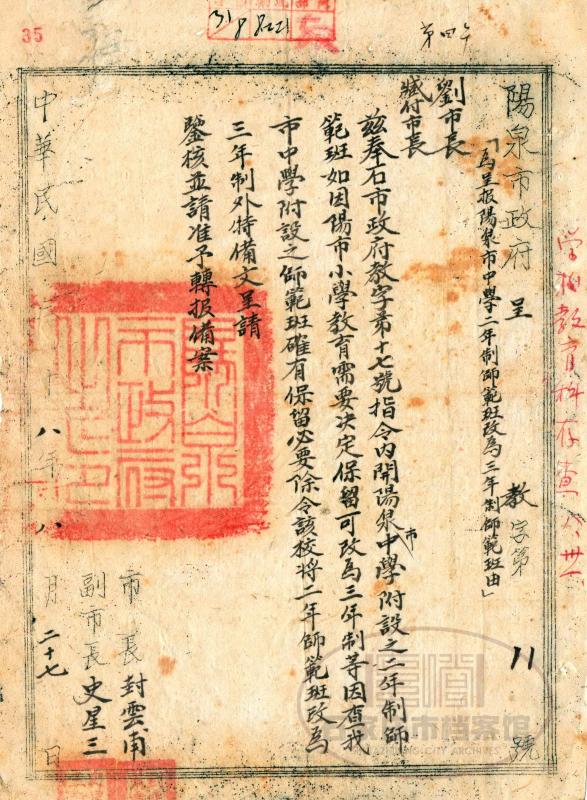 35
第四午
陽泉市政府 呈 教字第 11 號
「為呈报陽泉市中學二年制師範班改為三年制師範班由」
劉市長
臧付市長
兹奉石市政府教字第十七號指令內開陽泉市中學附設之二年制師
範班如因陽市小學教育需要决定保留可改為三年制等因查我
市中學附設之師範班確有保留必要除令該校將二年師範班改為
三年制外特備文呈請
鑒核並請准予轉报備案
市長 封雲甫
副市長 史星三
中華民國 十八年八月二十七日
教育科存查